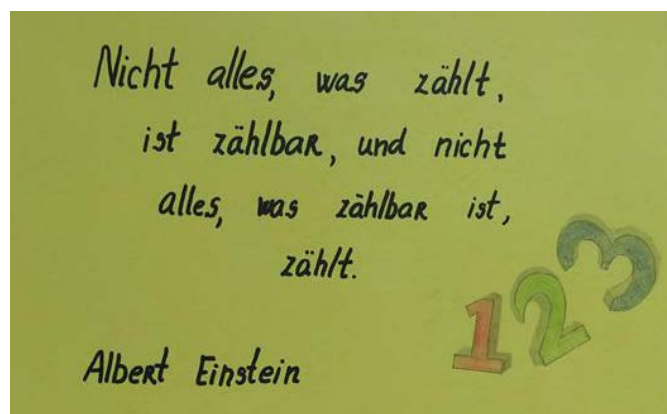 Nicht alles, was zählt,
ist zählbar, und nicht
alles, was zählbar ist,
zählt.
Albert Einstein
1 2 3